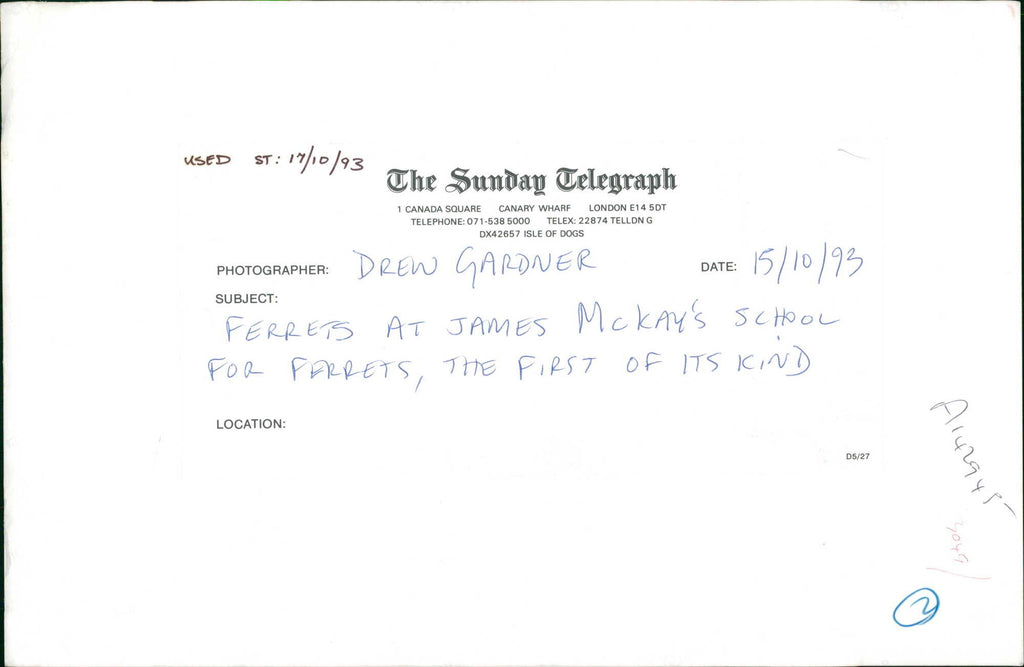 USED ST: 17/10/93
The Sunday Telegraph
1 CANADA SQUARE CANARY WHARF LONDON E14 5DT
TELEPHONE: 071-538 5000 TELEX: 22874 TELLDN G
DX42657 ISLE OF DOGS
PHOTOGRAPHER: DREW GARDNER DATE: 15/10/93
SUBJECT:
FERRETS AT JAMES McKAY'S SCHOOL
FOR FERRETS, THE FIRST OF ITS KIND
LOCATION:
D5/27
A1142945
2